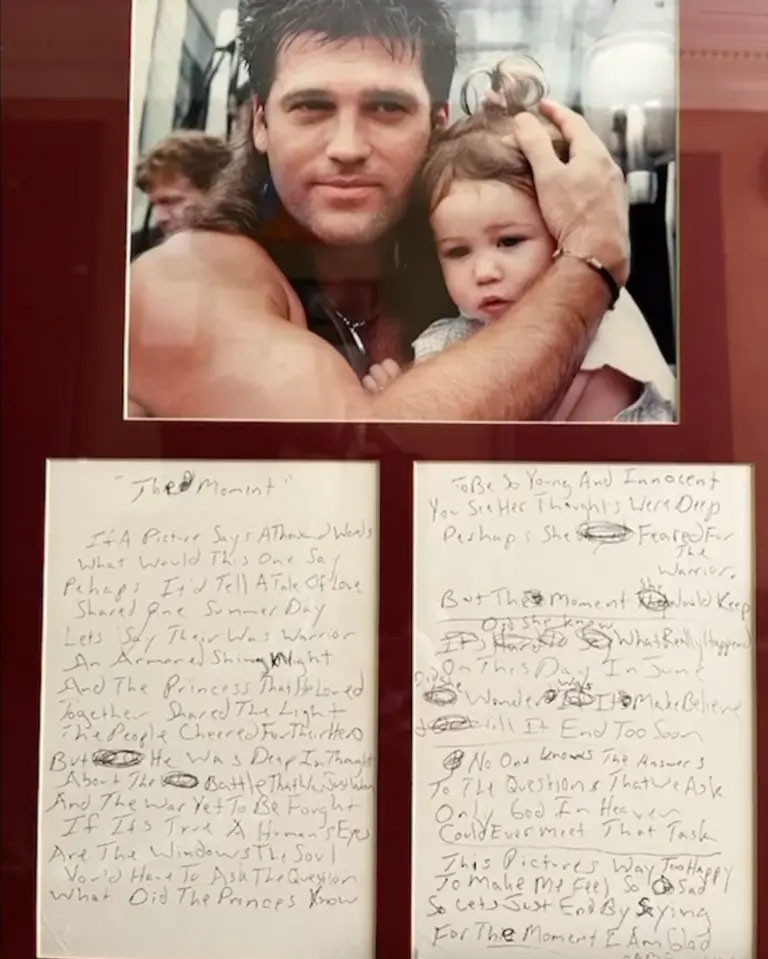 "The Moment"
If A Picture Says A Thousand Words
What Would This One Say
Pehaps It'd Tell A Tale Of Love
Shared One Summer Day
Lets Say Their Was Warrior
An Armored Shing Night
And The Princess That He Loved
Together Shared The Light
The People Cheered For Their Hero
But He Was Deep In Thought
About The Battle That Was Just
And The War Yet To Be Forght
If Its True A Human's Eyes
Are The Windows The Soul
You'd Have To Ask The Question
What Did The Princes Know
To Be So Young And Innocent
You See Her Thoughts Were Deep
Perhaps She Feared For
The
Warrior.
But The Moment She Would Keep
Did She Know
What Really Happened
On This Day In June
Did She Wonder Was It Make Believe
Will It End Too Soon
No One knows The Answers
To The Questions That We Ask
Only God In Heaven
Could Ever Meet That Task
This Pictures Way Too Happy
To Make Me Feel So Sad
So Lets Just End By Saying
For The Moment I Am Glad